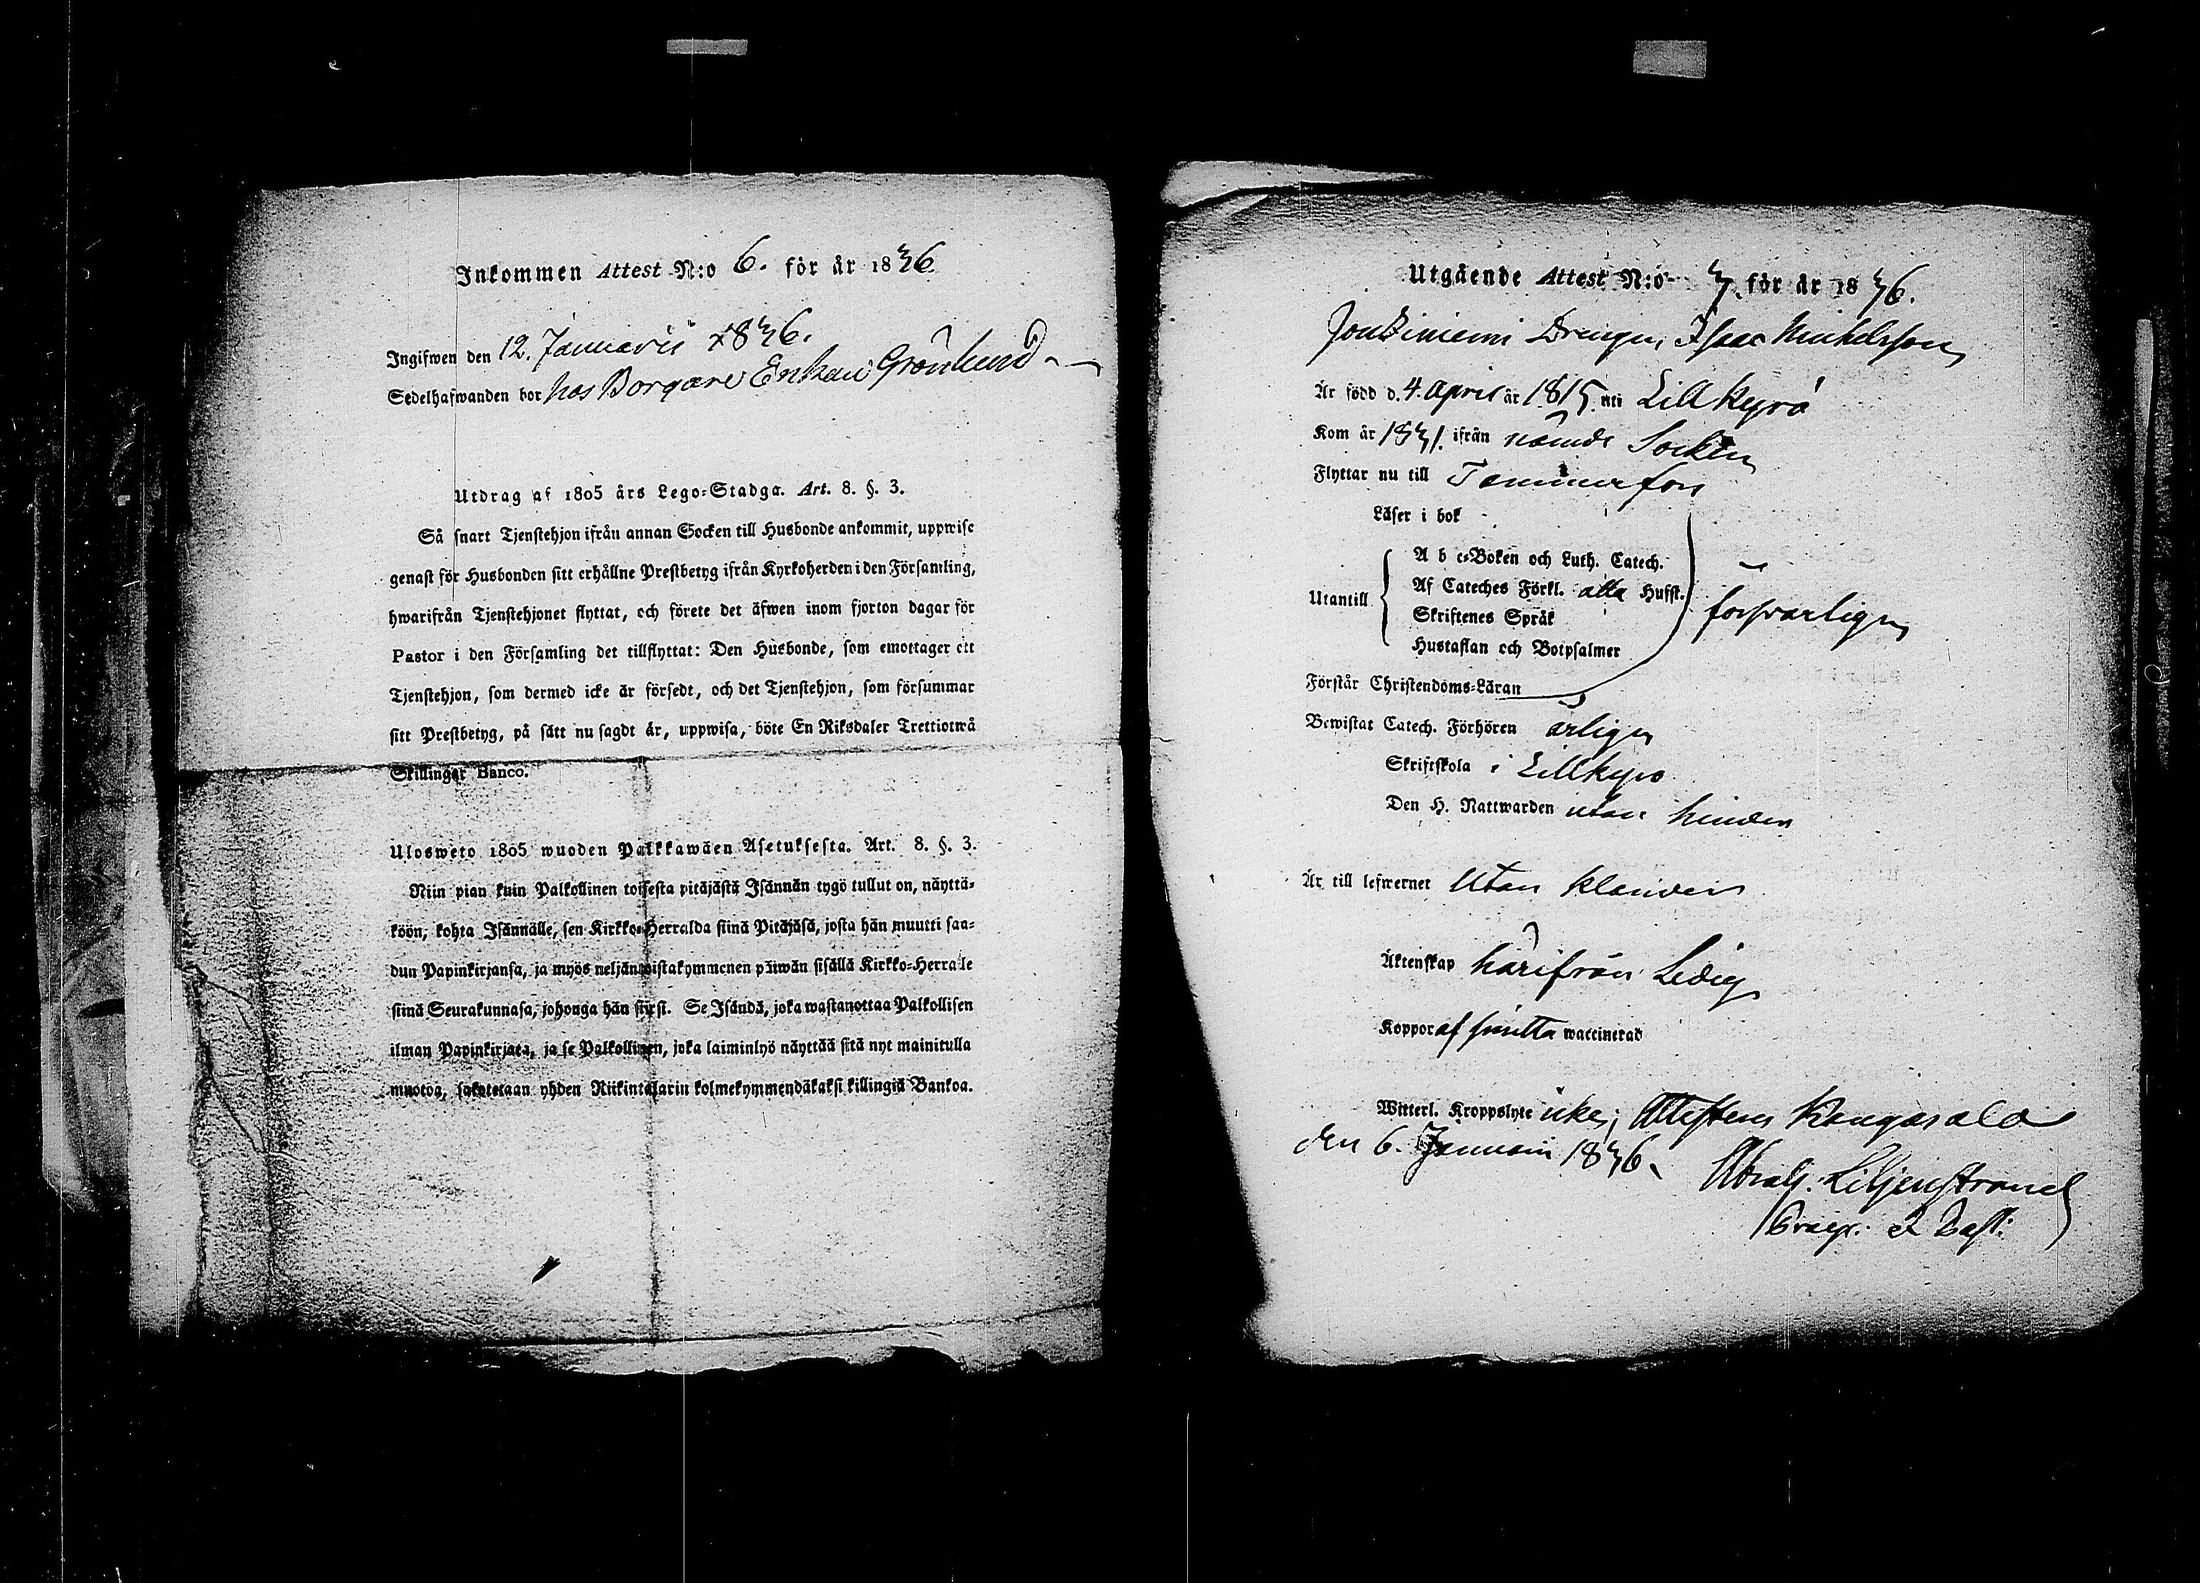 Inkommen Attest N:o 6. för år 1836
Ingifwen den 12. Januarii 1836.
Sedelhafwanden bor hos Borgare Enkan Grönlund
Utdrag af 1805 års Lego-Stadga. Art. 8. §. 3.
Så snart Tjenstehjon ifrån annan Socken till Husbonde ankommit, uppwise
genast för Husbonden sitt erhållne Prestbetyg ifrån Kyrkoherden i den Församling,
hwarifrån Tjenstehjonet flyttat, och förete det äfwen inom fjorton dagar för
Pastor i den Församling det tillflyttat: Den Husbonde, som emottager ett
Tjenstehjon, som dermed icke är försedt, och det Tjenstehjon, som försummar
sitt Prestbetyg, på sätt nu sagdt är, uppwisa, böte En Riksdaler Trettiotwå
Skillingar Banco.
Ulosweto 1805 wuoden Palkkawäen Asetuksesta. Art. 8. §. 3.
Niin pian kuin Palkollinen toisesta pitäjästä Isännän tygö tullut on, näyttä-
köön, kohta Isännälle, sen Kirkko-Herralda siinä Pitäjäsä, josta hän muutti saa-
dun Papinkirjansa, ja myös neljäntoistakymmenen päiwän sisällä Kirkko-Herralle
siinä Seurakunnasa, johonga hän siirsi. Se Isändä, joka wastanottaa Palkollisen
ilman Papinkirjata, ja se Palkollinen, joka laiminlyö näyttää sitä nyt mainitulla
muotoa, sakotetaan yhden Riikintalarin kolmekymmendäkaksi killingiä Bankoa.
Utgående Attest N:o 7. för år 1836.
Joutziniemi Drengen, Isaac Michelsson,
Är född d. 4. April år 1815. uti Lillkyro
Kom år 1831. ifrån nämde Socken
Flyttar nu till Tammerfors
Läser i bok
A b c-Boken och Luth. Catech.
Af Cateches Förkl. alla Hufst.
Utantill
Skriftenes Språk
försvarligen
Hustaflan och Botpsalmer
Förstår Christendoms-Läran
Bewistat Catech. Förhören årligen
Skriftskola i Lillkyro
Den H. Nattwarden utan hinder
Är till lefwernet utan klander
Äktenskap härifrån Ledig
Koppor af smitta waccinerad
Witterl. Kroppslyte icke; Attesteras Kangasala
den 6. Januarii 1836.
Abrah. Liljenstrand
Praep. et Past.